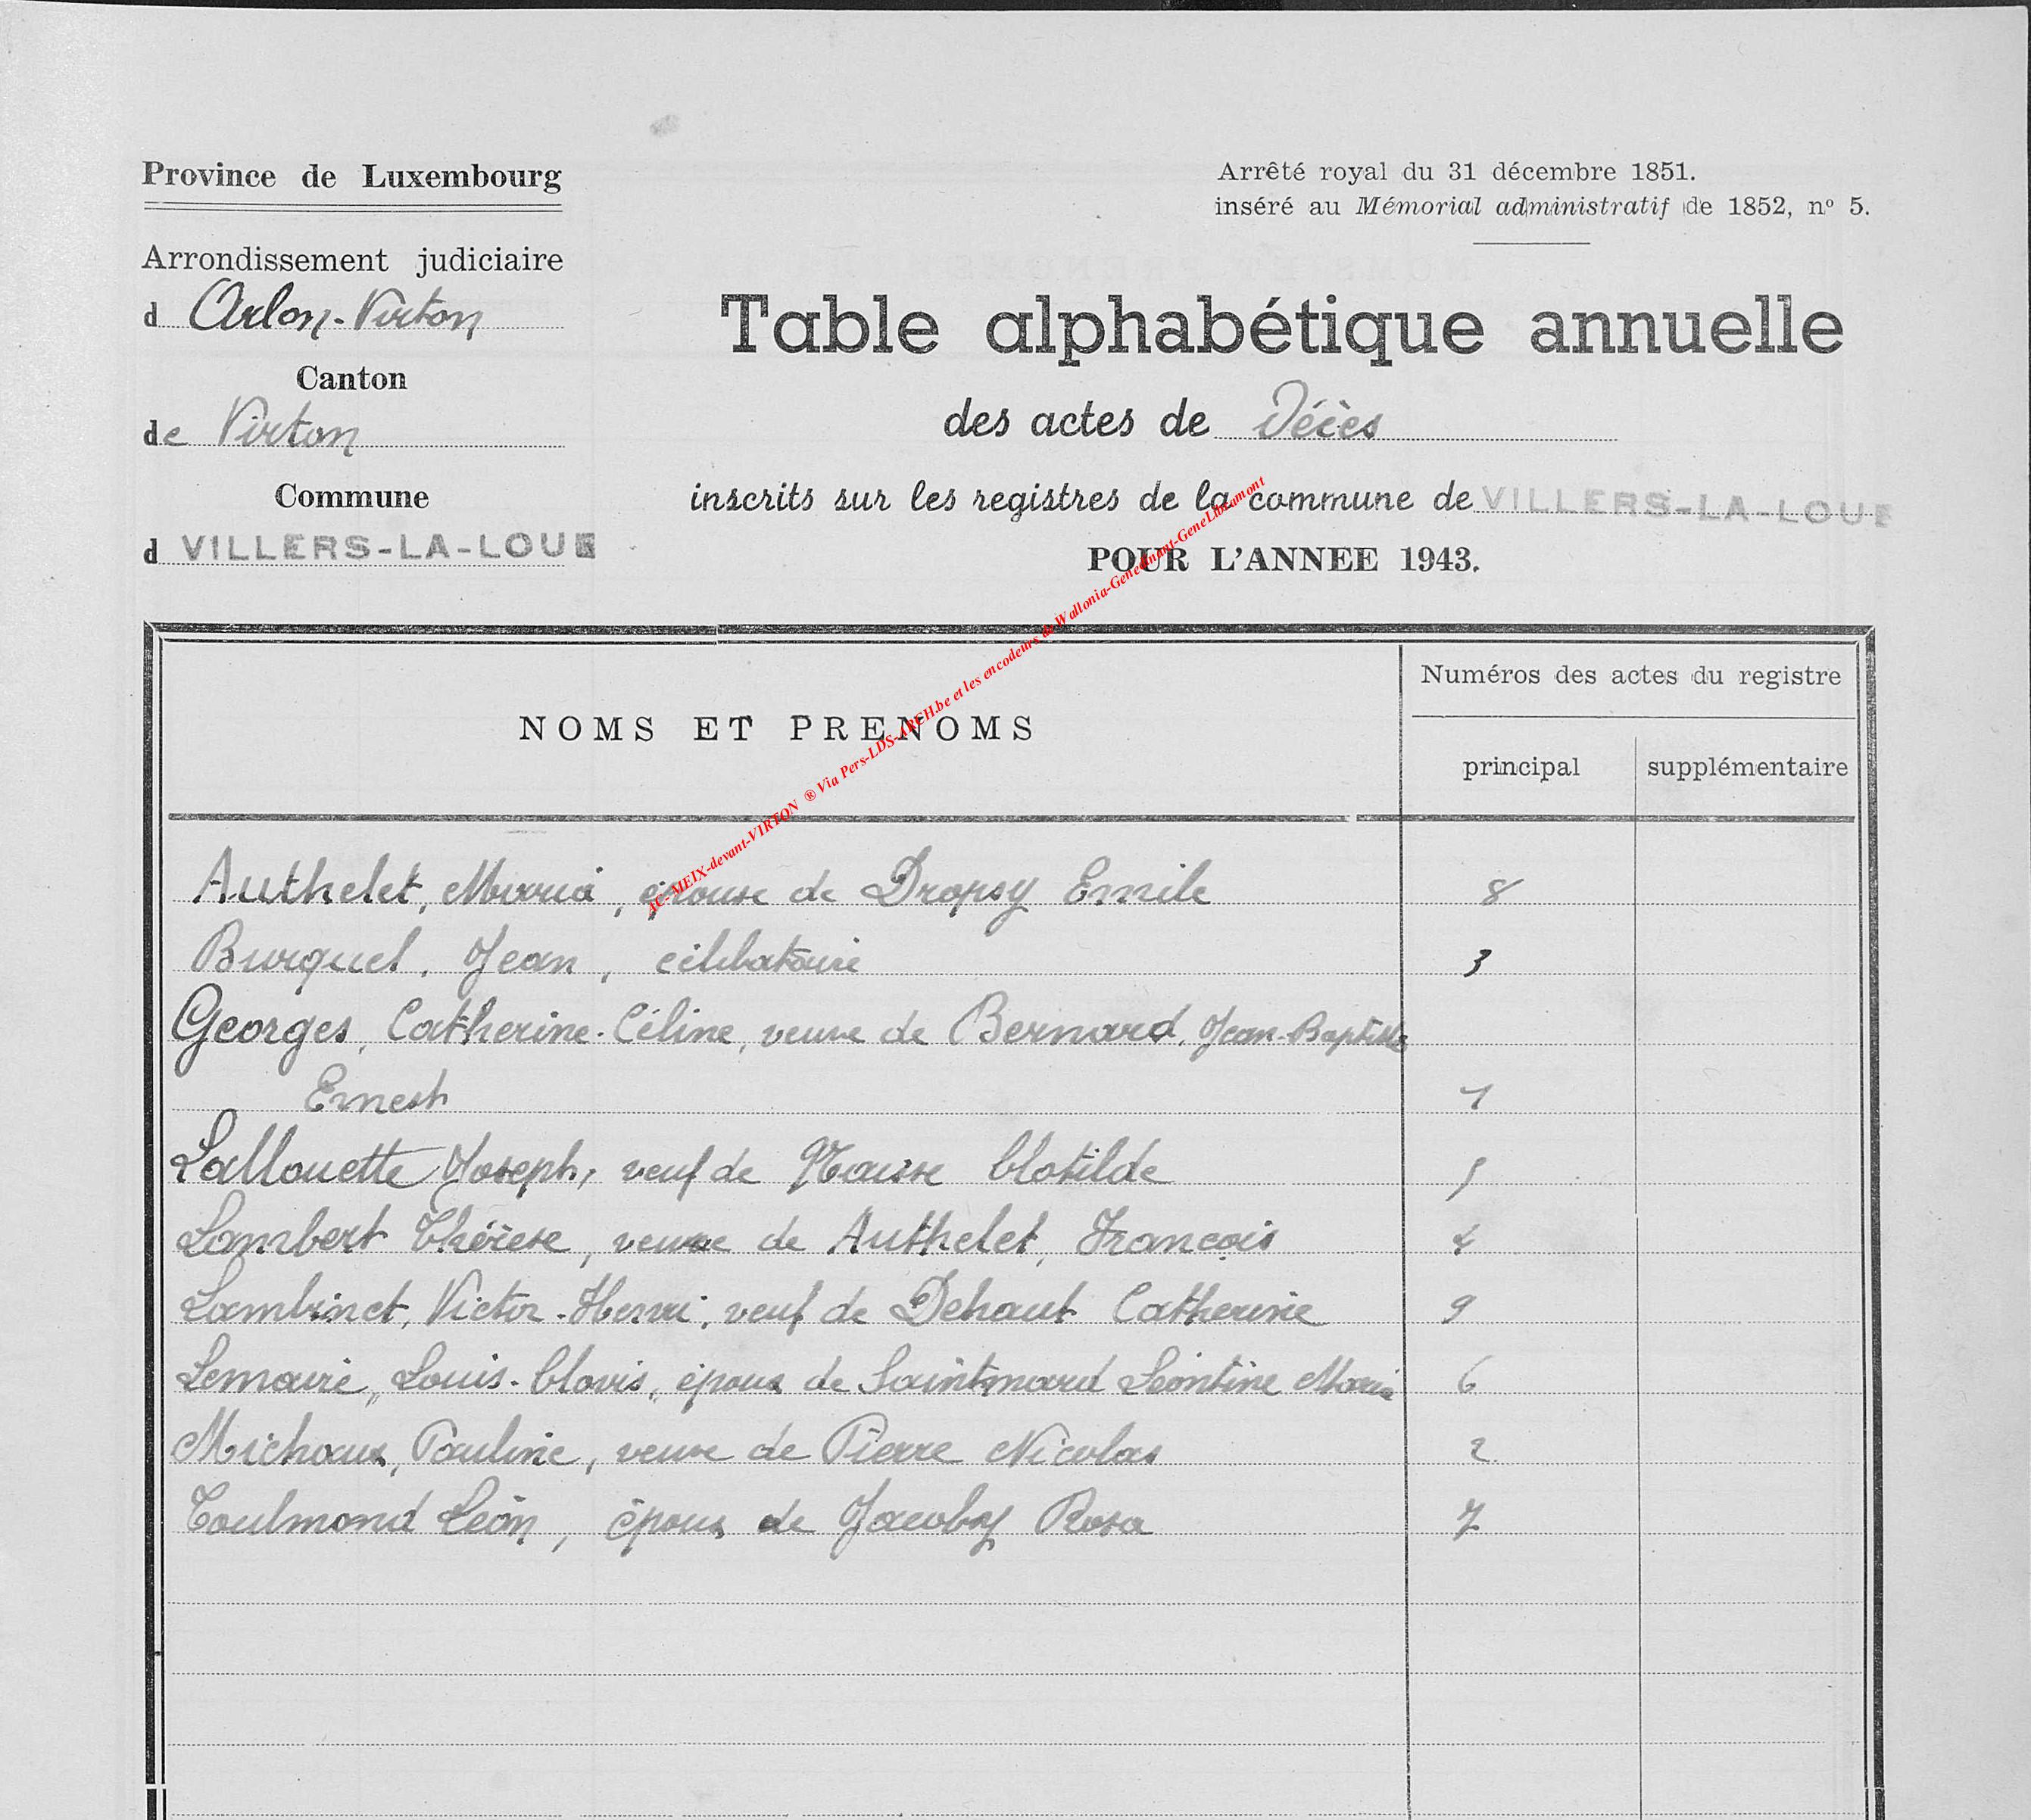 Province de Luxembourg
Arrêté royal du 31 décembre 1851.
inséré au Mémorial administratif de 1852, n° 5.
Arrondissement judiciaire
d Arlon-Virton
Canton
de Virton
Commune
d VILLERS-LA-LOUE
Table alphabétique annuelle
des actes de Décès
inscrits sur les registres de la commune de VILLERS-LA-LOUE
POUR L'ANNEE 1943.
AC-MEIX-devant-VIRTON ® Via Pers-LDS-ARCH.be et les encodeurs de Wallonia-Genedinant-GeneLibramont
NOMS ET PRENOMS
Numéros des actes du registre
principal supplémentaire
Authelet, Maria, épouse de Dropsy Emile 8
Burquel, Jean, célibataire 3
Georges, Catherine-Céline, veuve de Bernard, Jean-Baptiste
Ernest 1
Lallouette Joseph, veuf de Clotilde 5
Lambert Thérèse, veuve de Authelet, François 4
Lambinet, Victor-Henri, veuf de Dehaut Catherine 9
Lemaire, Louis-Clovis, époux de Saintmard Léontine Maria 6
Michaux, Pauline, veuve de Pierre Nicolas 2
Toulmond Léon, époux de Jacoby Rosa 7